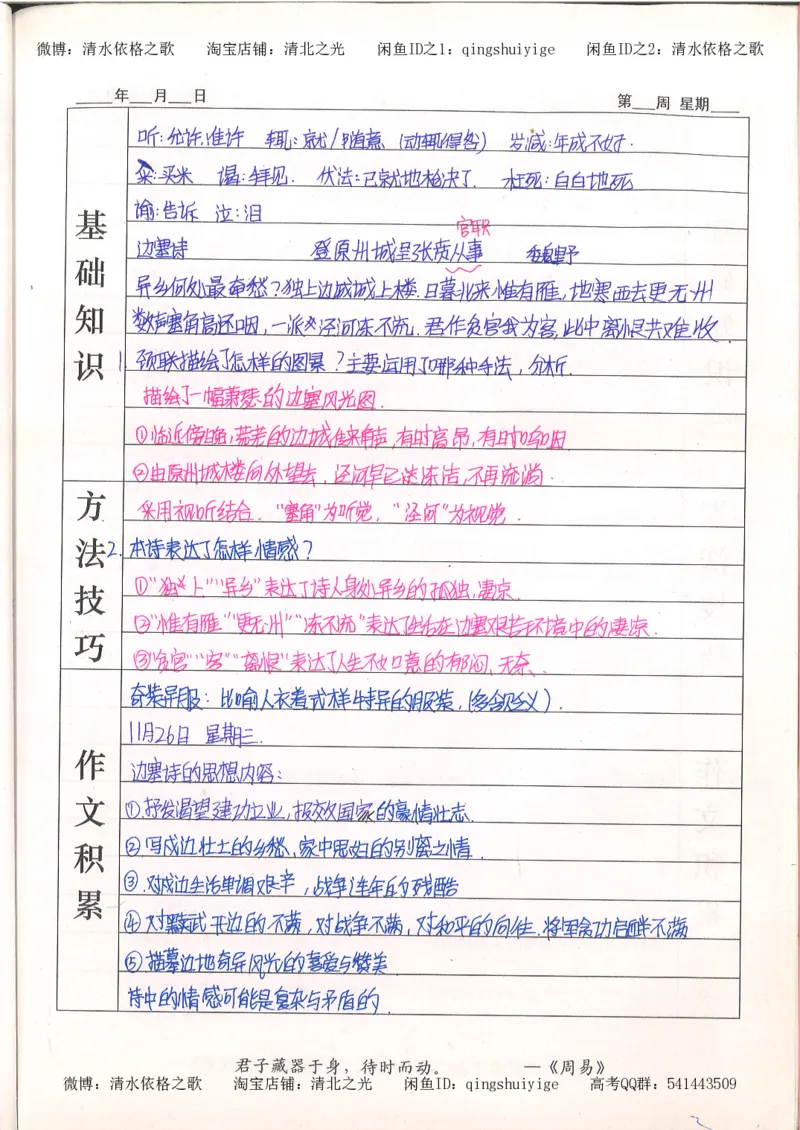 微博：清水依格之歌 淘宝店铺：清北之光 闲鱼ID之1：qingshuiyige 闲鱼ID之2：清水依格之歌
年 月 日 第 周 星期
基础知识
听：允许,准许 辄：就/随意 (动辄得咎) 岁减：年成不好.
籴：买米 谒：拜见. 伏法：已就地枪决了. 枉死：白白地死
谕：告诉 泣：泪
官职
边塞诗 登原州城呈张贲从事 魏野
异乡何处最牵愁？独上边城城上楼.日暮北来惟有雁,地寒西去更无州
数声塞角高还咽,一派泾河冻不流.君作贫官我为客,此中离恨共难收.
1.颈联描绘了怎样的图景？主要运用了哪种手法,分析.
描绘了一幅萧瑟的边塞风光图.
①临近傍晚,荒芜的边城传来角声,有时高昂,有时呜咽
②由原州城楼向外望去,泾河早已冻洁,不再流淌.
方法技巧
采用视听结合."塞角"为听觉,"泾河"为视觉.
2.本诗表达了怎样情感？
①"独上""异乡"表达了诗人身处异乡的孤独,凄凉.
②"惟有雁""更无州""冻不流"表达了生活在边塞艰苦环境中的凄凉.
③"贫官""客""离恨"表达了人生不如意的郁闷、无奈.
作文积累
奇装异服：比喻人衣着式样特异的服装.(多含贬义).
11月26日 星期三.
边塞诗的思想内容：
①.抒发渴望建功立业,报效国家的豪情壮志.
②.写戍边壮士的乡愁,家中思妇的别离之情.
③.对戍边生活单调艰辛,战争连年的残酷
④.对黩武开边的不满,对战争不满,对和平的向往.将军贪功启衅不满
⑤.描摹边地奇异风光的喜爱与赞美
诗中的情感可能是复杂与矛盾的.
君子藏器于身，待时而动。 —《周易》
微博：清水依格之歌 淘宝店铺：清北之光 闲鱼ID：qingshuiyige 高考QQ群：541443509